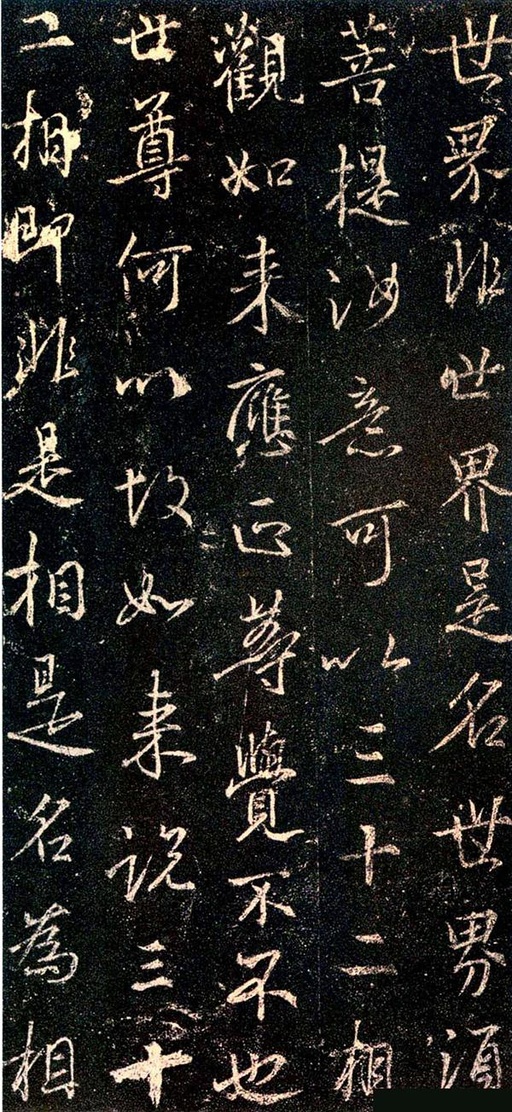 世界非世界是名世界須
菩提汝意可以三十二相
觀如来應正等覺不不也
世尊何以故如来說三十
二相即非是相是名為相